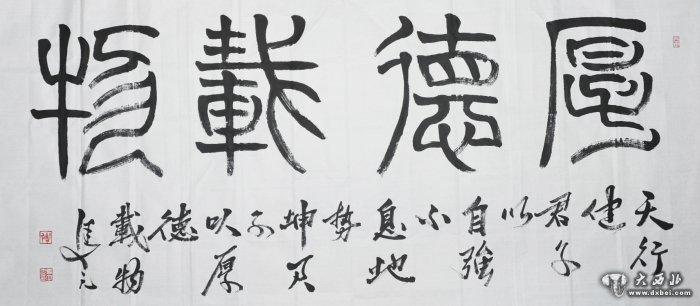 厚德載物
天行
健
君子
以
自強
不
息地
勢
坤君
子
以厚
德
載物
大西北
www.dxbei.com